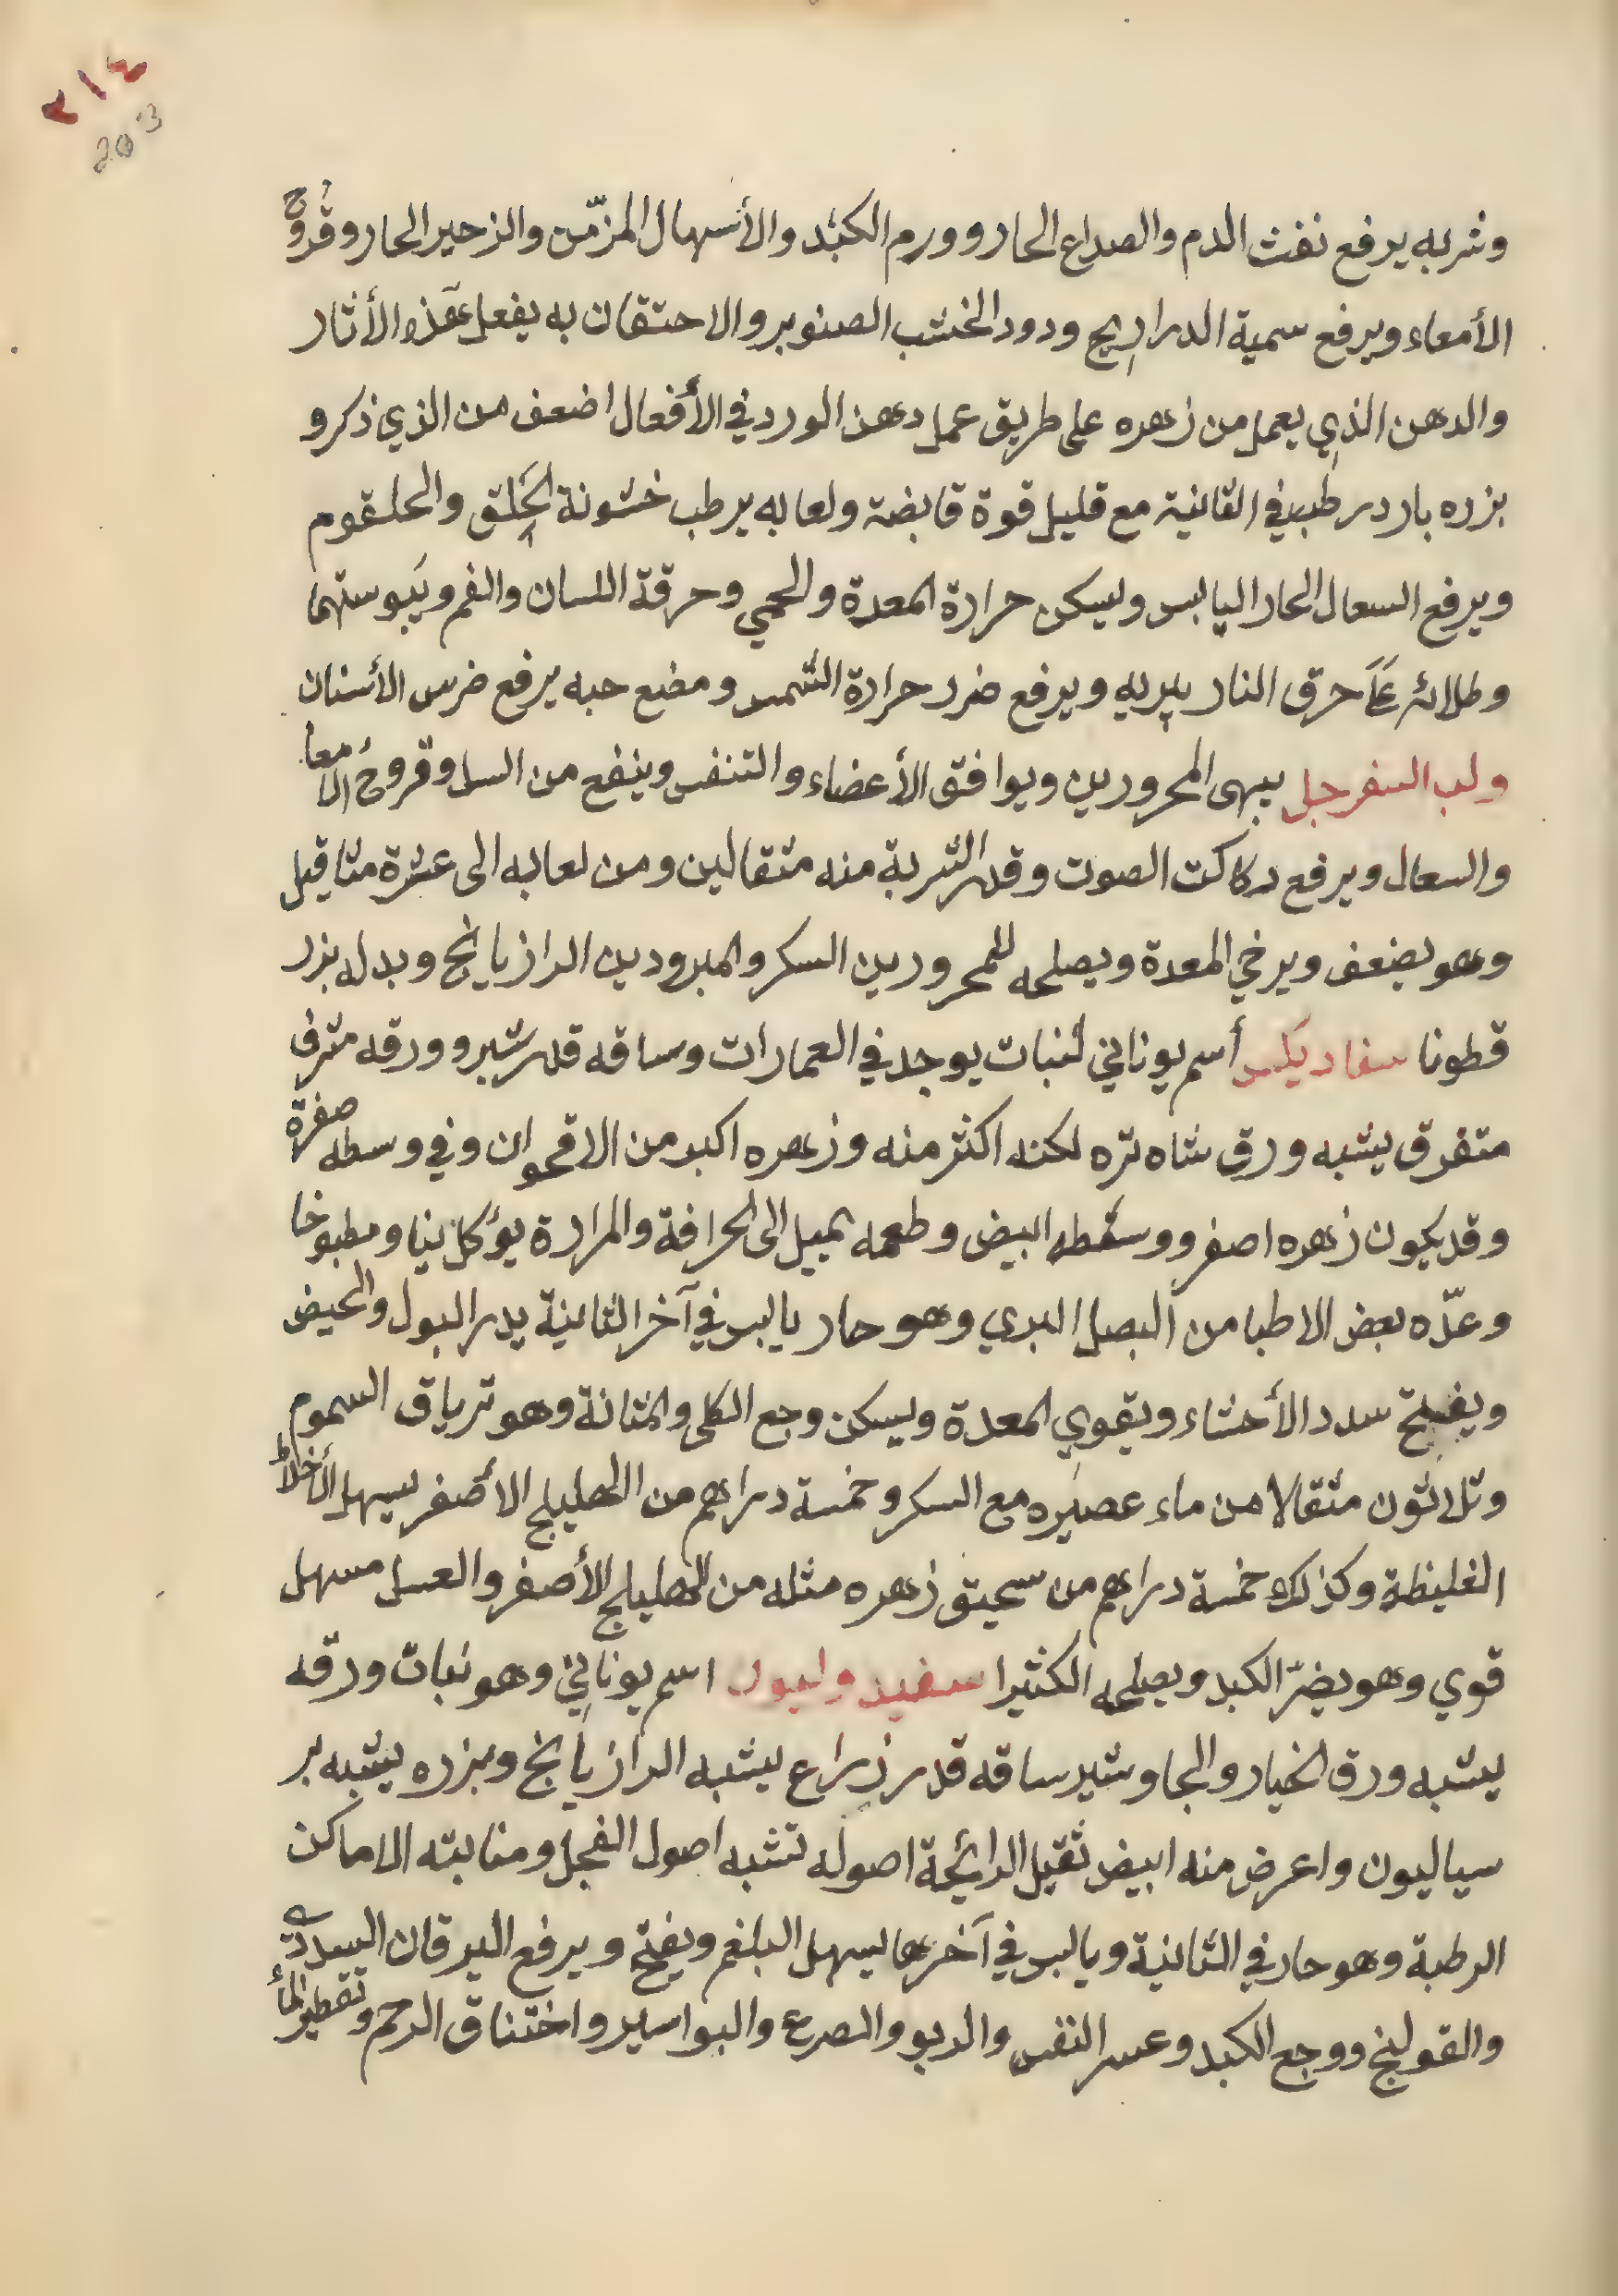 ٢١٤
203
وشربه يرفع نفث الدم والصداع الحار وورم الكبد والأسهال المزمّن والزحير الحار وقروح
الأمعاء ويرفع سمية الدراريح ودود الخشب الصنوبر والاحتقان به يفعل هذه الأثار
والدهن الذي يعمل من زهره على طريق عمل دهن الورد في الأفعال اضعف من الذي ذكر و
بزره بارد رطب في الثانية مع قليل قوة قابضة ولعابه يرطب خشونة الحَلق والحلقوم
ويرفع السعال الحار اليابس ويسكن حرارة المعدة والحمي وحرقة اللسان والفم ويَبوستهما
وطلائه عَلَى حرق النار يبريه ويرفع ضرر حرارة الشمس ومضغ حبه يرفع ضرس الأسنان
ولب السفرجل يبهى المحرورين ويوافق الأعضاء والتنفس وينفع من السل وقروح الأمعا
والسعال ويرفع ركاكت الصوت وقدر الشربة منه مثقالين ومن لعابه الى عشرة مثاقيل
وهو يضعف ويرخي المعدة ويصلحه للمحرورين السكر والمبرودين الرازيانج وبدله بزر
قطونا سفاديكس أسم يوناني لنبات يوجد في العمارات وساقه قدر شبر وورقه مشرف
متفرق يشبه ورق شاه تره لكنه اكثر منه وزهره اكبر من الاقحوان وفي وسطه صفرة
وقد يكون زهره اصفر ووسطه ابيض وطعمه يميل الى الحرافة والمرارة يؤكل نيا ومطبوخا
وعدّه بعض الاطبا من البصل البري وهو حار يابس في آخر الثانية يدر البول والحيض
ويفتح سدد الأحشاء ويقوي المعدة ويسكن وجع الكلى والمثانة وهو ترياق السموم
وثلاثون مثقالا من ماء عصيره مع السكر وخمسة دراهم من الهليلج الاصفر يسهل الأخلاط
الغليظة وكذلك خمسة دراهم من سحيق زهره مثله من الهليلج الأصفر والعسل مسهل
قوي وهو يضرّ الكبد ويصلحه الكثيرا سفيد وليون اسم يوناني وهو نبات ورقه
يشبه ورق الخيار والجاوشير ساقه قدر زراع يشبه الرازيانج وبزره يشبه بر
سياليون واعرض منه ابيض ثقيل الرائحة اصوله تشبه اصول الفجل ومنابته الاماكن
الرطبة وهو حار في الثانية ويابس في آخرها يسهل البلغم ويفتح ويرفع اليرقان السددي
والقولنج ووجع الكبد وعسر النفس والربو والصرع والبواسير واختناق الرحم وتقطير